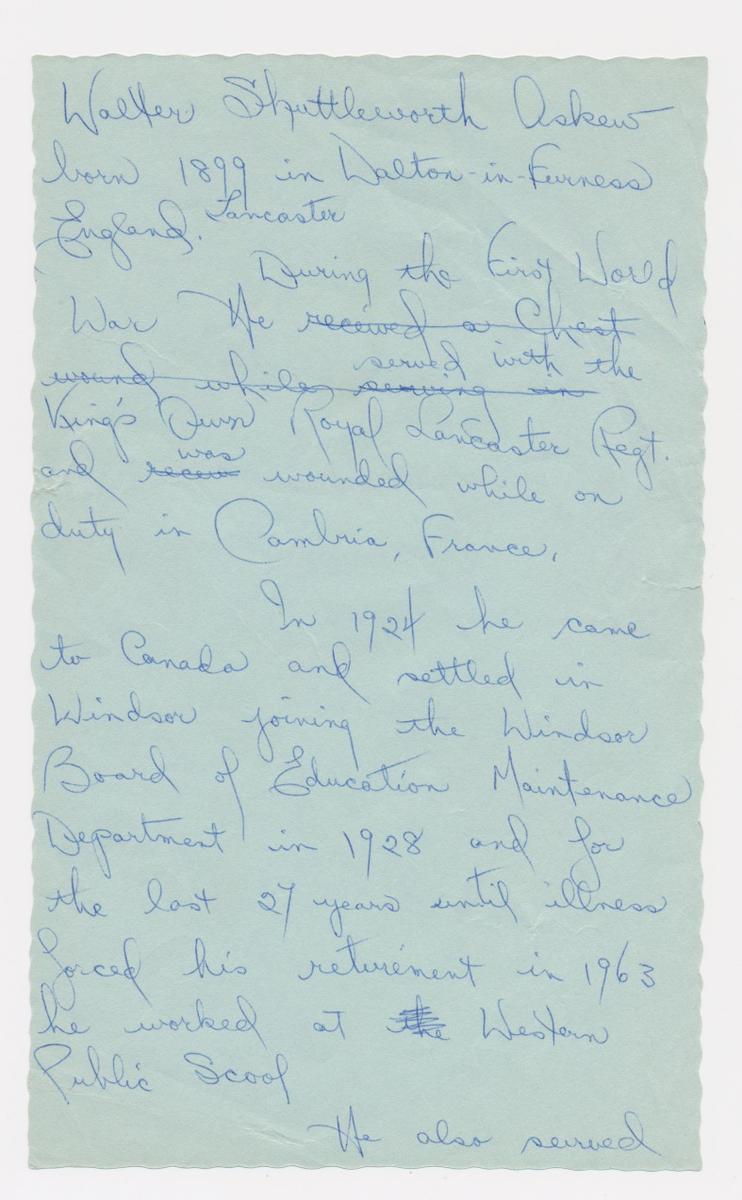 Walter Shuttleworth Askew
born 1899 in Dalton-in-Furness
England. Lancaster
During the First World
War He received a Chest
served with the
wound while serving in
King's Own Royal Lancaster Regt.
was
and receiv wounded while on
duty in Cambria, France,
In 1924 he came
to Canada and settled in
Windsor joining the Windsor
Board of Education Maintenance
Department in 1928 and for
the last 27 years until illness
forced his retirement in 1963
he worked at the Western
Public Scool
He also served